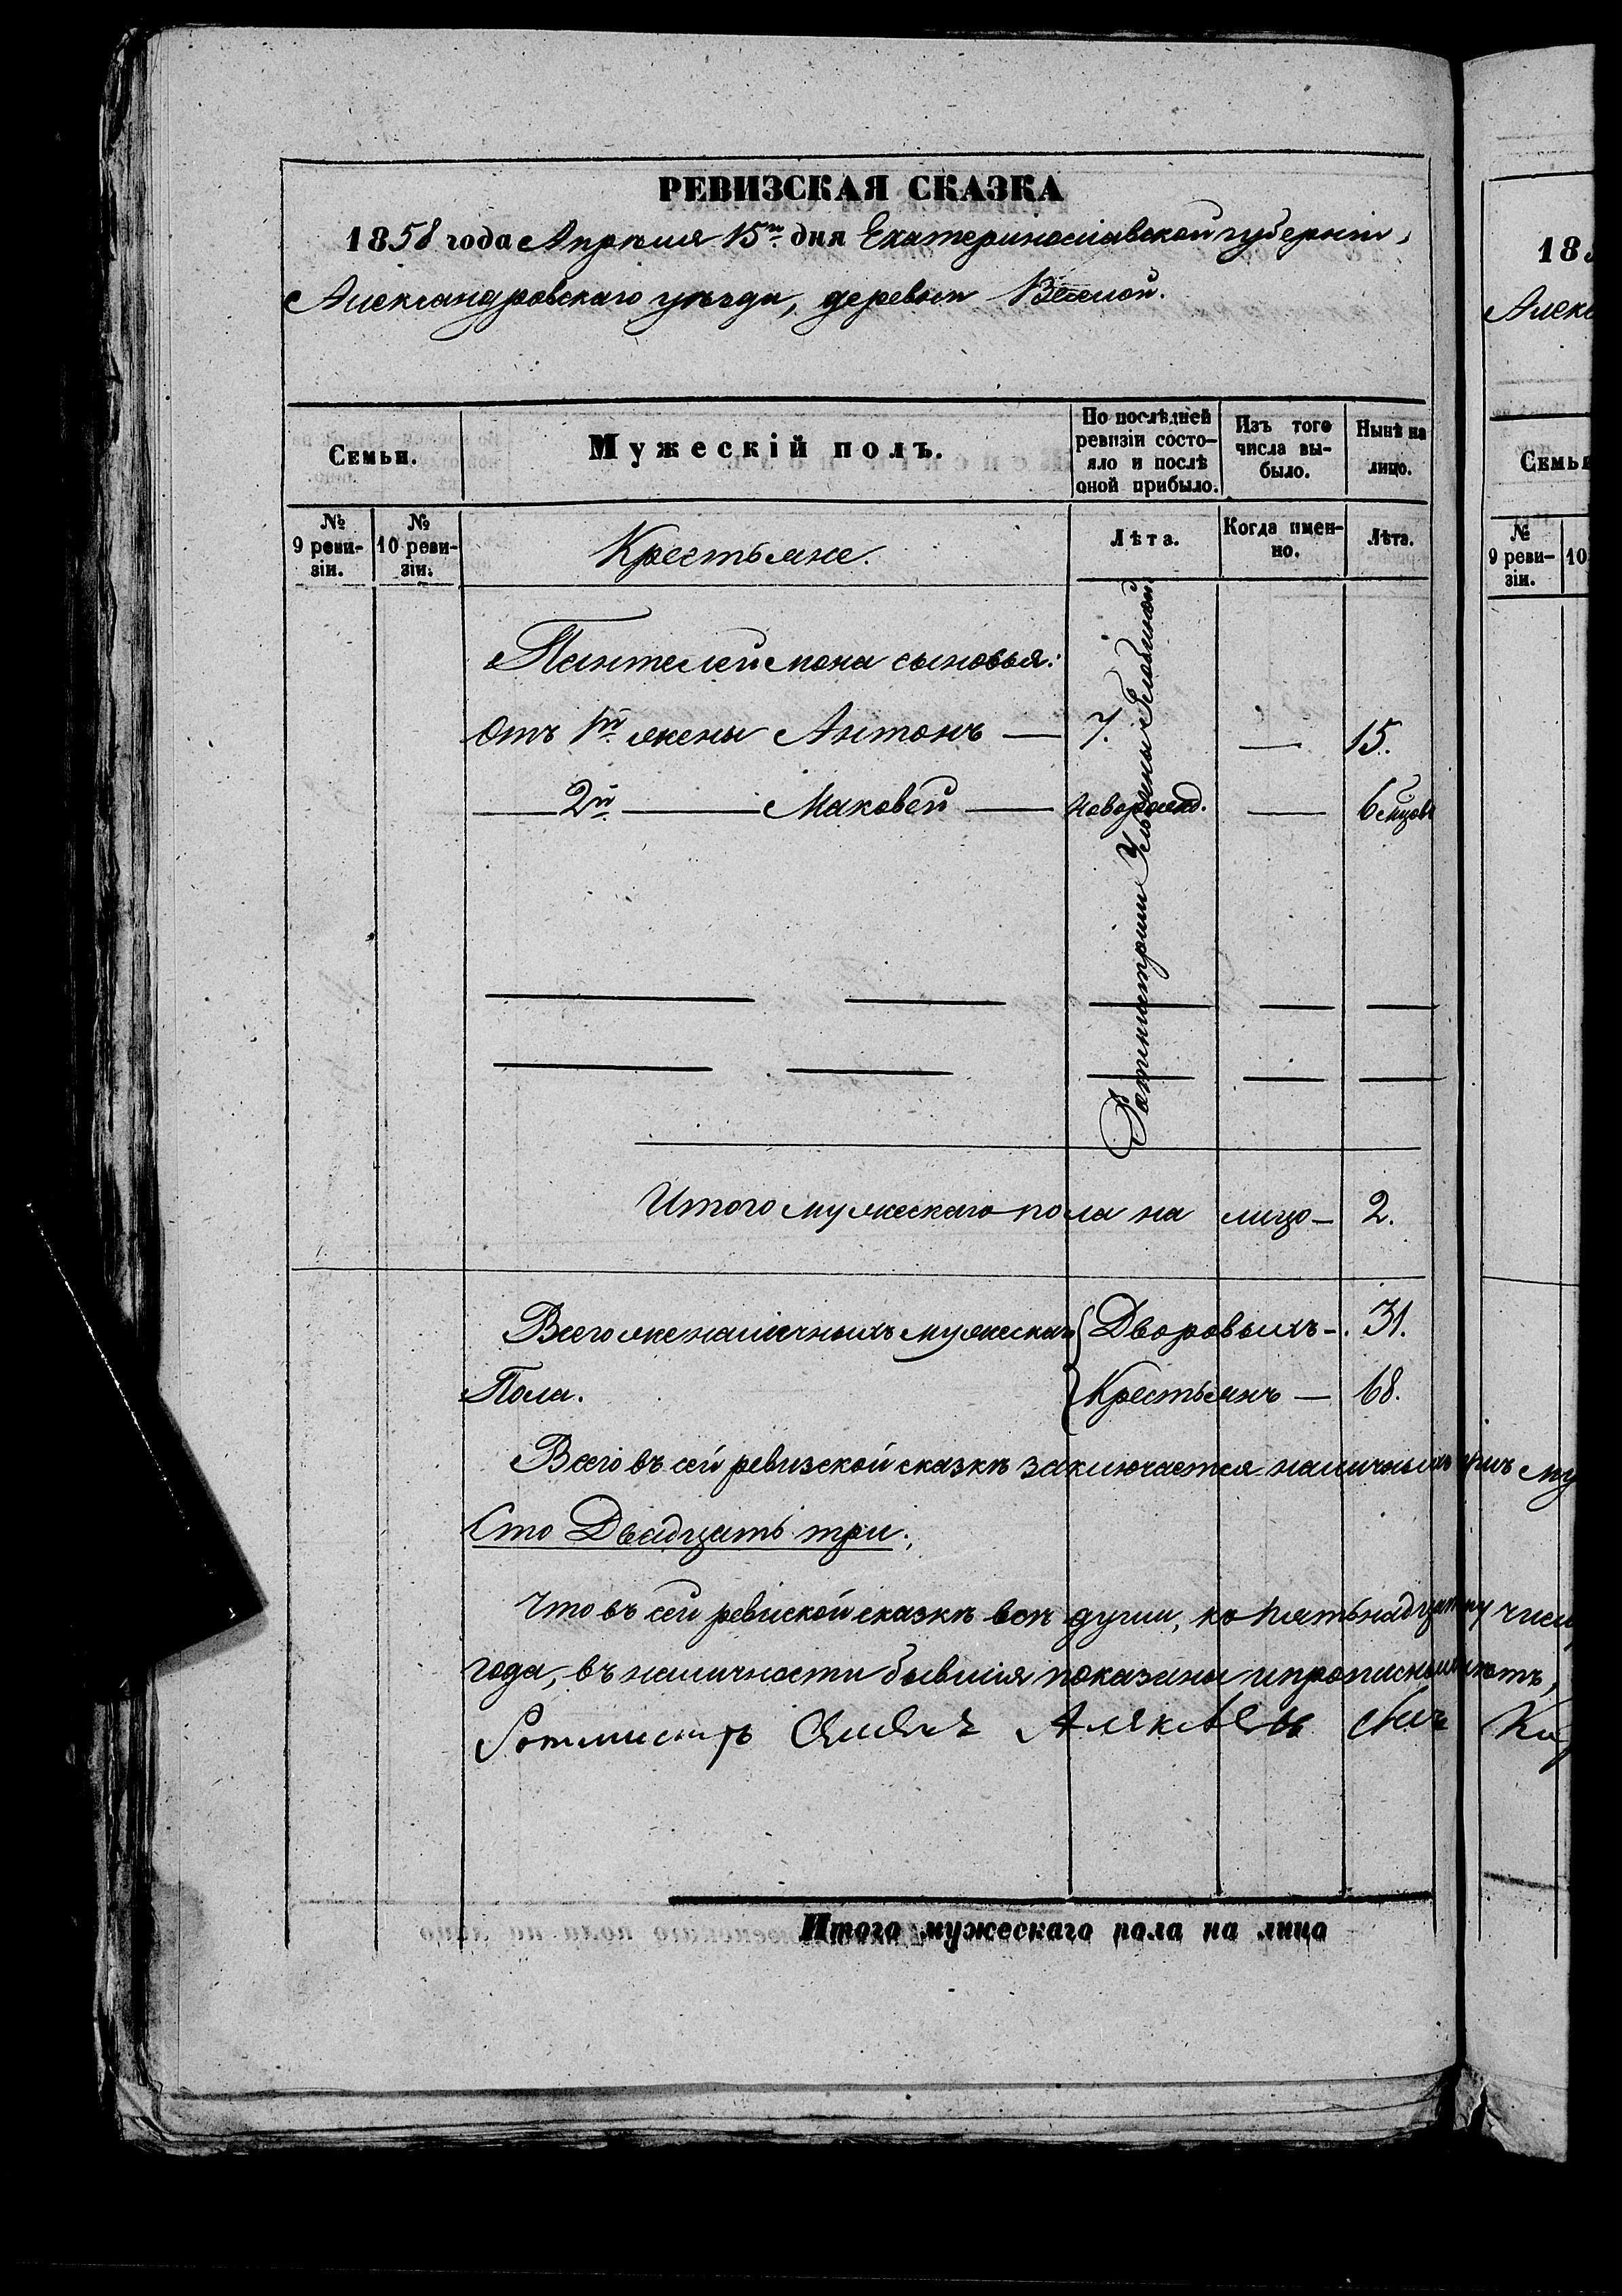 РЕВИЗСКАЯ СКАЗКА
1858 года Апрѣля 15го дня Екатеринославской губерніи,
Александровскаго уѣзда, деревни Веселой.
Семьи.
Мужескій полъ.
По послѣдней ревизіи состо-
яло и послѣ
оной прибыло.
Изъ того
числа вы-
было.
Нынѣ на
лицо.
№
9 реви-
зіи.
№
10 реви-
зіи.
Крестьяне.
Лѣта.
Когда имен-
но.
Лѣта.
Пантелеймона сыновья:
Отъ 1й жены Антонъ — 7. — 15.
— 2й — Маковей — новорожд. — 6 мцовъ
Ротмистрши Ульяны
Итого мужескаго пола на лицо — 2.
Всего же наличныхъ мужескаго Дворовыхъ — 31.
Пола. Крестьянъ — 68.
Всего въ сей ревизской сказкѣ заключается наличныхъ
Сто Двадцать три.
Что въ сей ревиской сказкѣ всѣ души, къ пятьнадцатому
года, въ наличности бывшія показаны и прописныхъ нѣтъ,
Ротмистръ
Итого мужескаго пола на лицо
18
Алекс
Семьи
№
9 реви-
зіи.
10